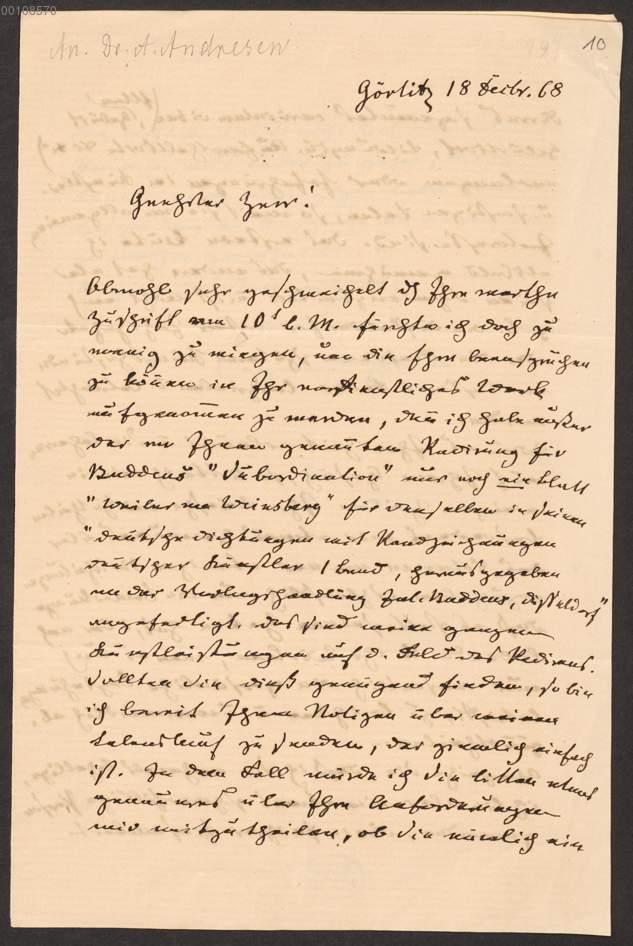 00108570
An. Dr. A. Andresen
10
Görlitz 18 Decbr. 68
Geehrter Herr!
Obwohl sehr geschmeichelt dch Ihre werthe
Zuschrift vom 10t l. M. fürchte ich doch zu
wenig zu wiegen, um die Ehre beanspruchen
zu können in Ihr verdienstliches Werk
aufgenommen zu werden, denn ich habe außer
der von Ihnen genannten Radirung für
Buddeus "Subordination" nur noch ein Blatt
"Weiber von Weinsberg" für denselben in seinen
"deutsche Dichtungen mit Randzeichnungen
deutscher Künstler 1 Band, herausgegeben
von der Verlagshandlung Jul. Buddeus, Düsseldorf"
angefertigt. Das sind meine ganzen
Kunstleistungen auf d. Feld des Radirens.
Sollten Sie dieß genügend finden, so bin
ich bereit Ihnen Notizen über meinen
Lebenslauf zu senden, der ziemlich einfach
ist. In dem Fall würde ich Sie bitten etwas
genaueres über Ihre Anforderungen
mir mitzutheilen, ob Sie nämlich ein